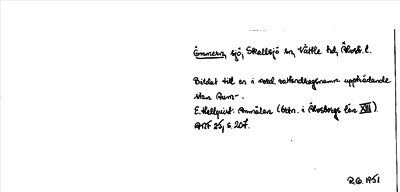 Ömmern, sjö, Skallsjö sn, Vättle hd, Älvsb. l.
Bildat till en i sotal vattendragsnamn uppträdande
stam Aum-.
E. Hellquist: Anmälan (Ortn. i Älvsborgs län XIII).
ANF 25, s. 207.
B.G. 1951